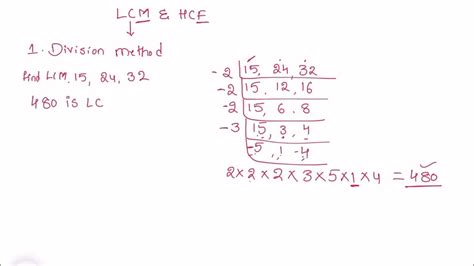 LCM & HCF
1. Division method
find LCM, 15, 24, 32
480 is LC
-2 | 15, 24, 32
-2 | 15, 12, 16
-2 | 15, 6, 8
-3 | 15, 3, 4
-5, 1, -4
2×2×2×3×5×1×4 = 480